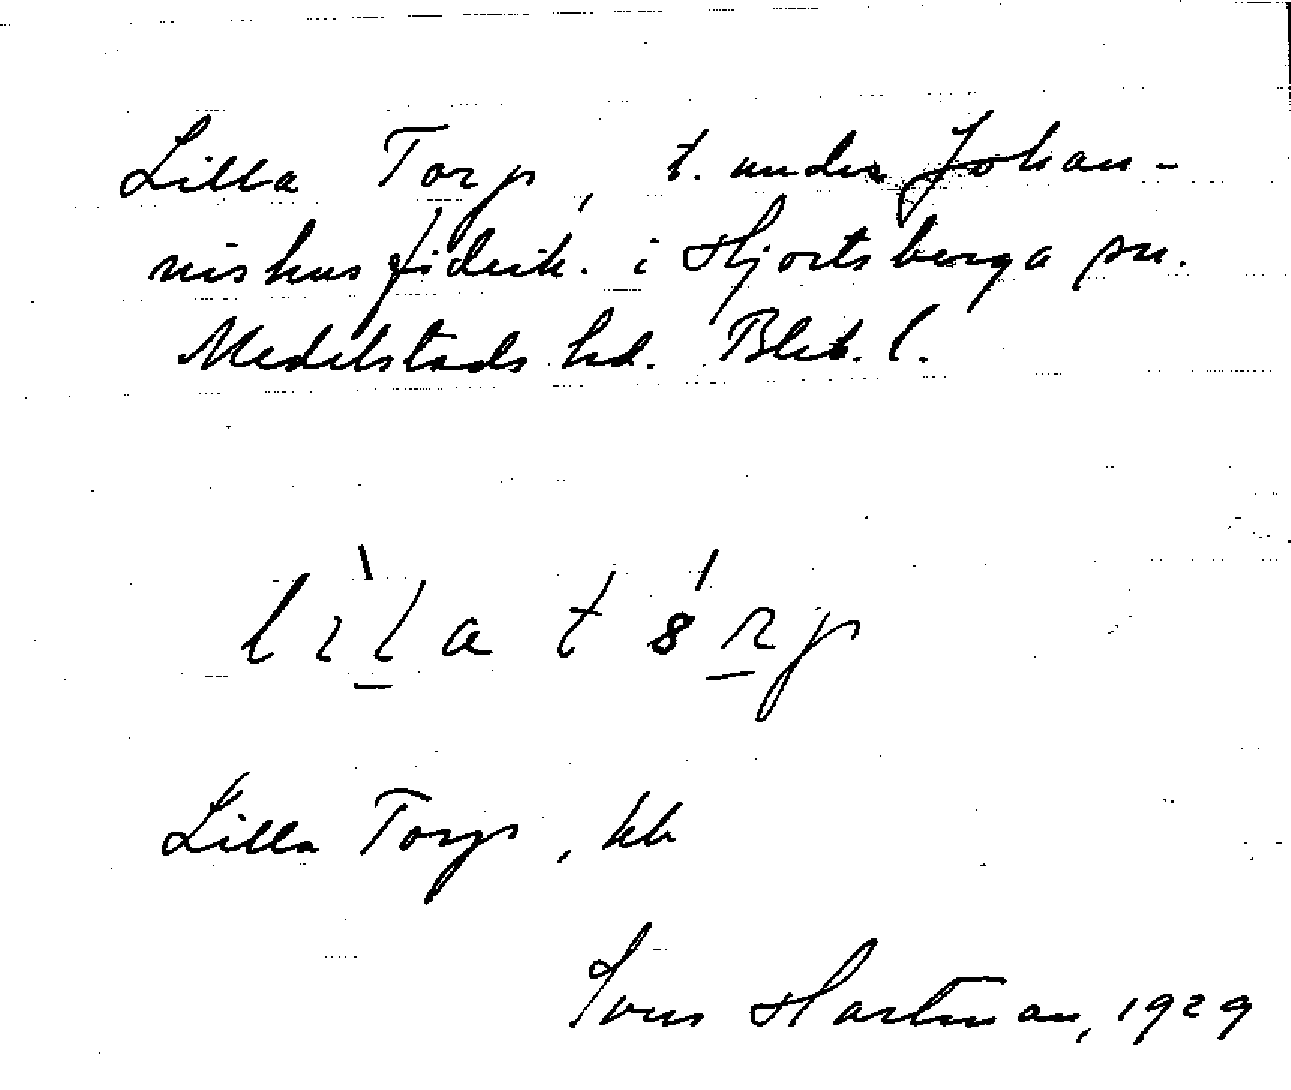 Lilla Torp, t. under Johan-
nishus fideik. i Hjortsberga sn.
Medelstads hd. Blek. l.
lìla t
Lilla Torp, kb
Ivar Hartman, 1929